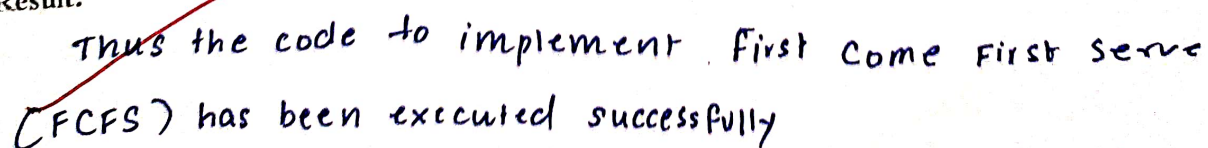 Result:
Thus the code to implement First Come First Serve
(FCFS) has been executed successfully